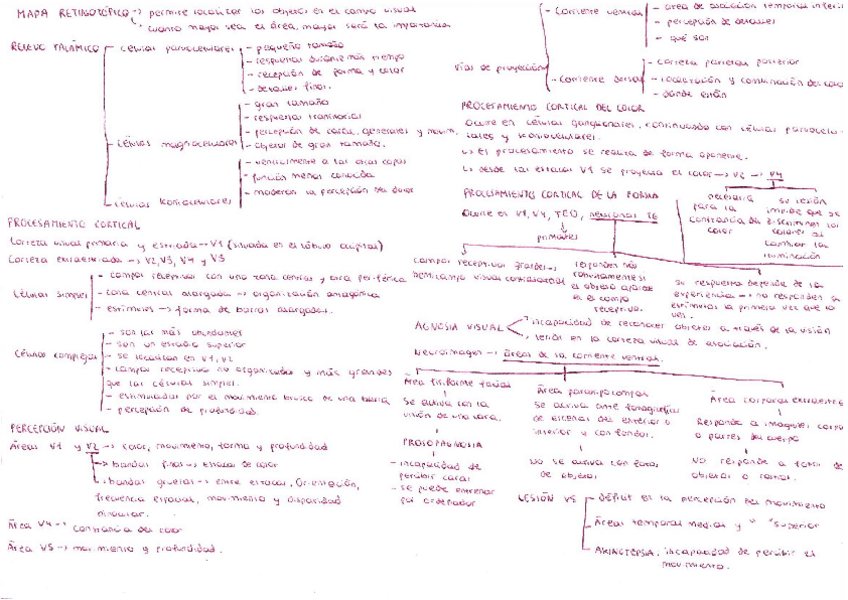 MAPA RETINOTÓPICO → permite localizar los objetos en el campo visual
↳ cuanto mayor sea el área, mayor será la importancia
RELEVO TALÁMICO
Células parvocelulares
- pequeño tamaño
- respuestas durante más tiempo
- recepción de forma y color
- detalles finos.
Células magnocelulares
- gran tamaño
- respuestas transitorias
- percepción de caract. generales y movim.
- objetos de gran tamaño.
Células koniocelulares
- ventralmente a las otras capas
- función menos conocida
- modulan la percepción del color
PROCESAMIENTO CORTICAL
Corteza visual primaria y estriada → V1 (situada en el lóbulo occipital)
Corteza extraestriada → V2, V3, V4 y V5
Células simples
- campo receptivo con una zona central y otra periférica
- zona central alargada → organización antagónica
- estímulos → forma de barras alargadas.
Células complejas
- son las más abundantes
- son un estadio superior
- se localizan en V1, V2
- campos receptivo no organizados y más grandes
que las células simples.
- estimuladas por el movimiento brusco de una barra
- percepción de profundidad.
PERCEPCIÓN VISUAL
Áreas V1 y V2 → color, movimiento, forma y profundidad
→ bandas finas → entrada de color
↳ bandas gruesas → entre estrías, Orientación,
frecuencia espacial, movimiento y disparidad
binocular.
Área V4 → constancia del color
Área V5 → movimiento y profundidad.
Vías de proyección
- Corriente ventral
- área de asociación temporal inferi
- percepción de detalles
- qué son
- Corriente dorsal
- corteza parietal posterior
- localización y coordinación del
- dónde están
PROCESAMIENTO CORTICAL DEL COLOR
Ocurre en células ganglionares, continuando con células parvocelu-
lares y koniocelulares.
↳ El procesamiento se realiza de forma oponente.
↳ desde las V1 se proyecta el color → V2 → V4
necesaria para la constancia del color
su lesión impide que se discriminen los colores al cambiar la iluminación
PROCESAMIENTO CORTICAL DE LA FORMA
Ocurre en V1, V4, TEO, neuronas TE
primates
campos receptivos grandes →
hemicampo visual contralateral
responden más
si
el objeto aparece
en el campo
receptivo.
su respuesta depende de la
experiencia → no responden a
estímulos la primera vez que lo
ves.
AGNOSIA VISUAL
incapacidad de reconocer objetos a través de la visión
lesión en la corteza visual de asociación.
Neuroimagen → áreas de la corriente ventral.
Área fusiforme facial
se activa con la
visión de una cara.
PROSOPAGNOSIA
- incapacidad de
percibir caras
- se puede entrenar
por ordenador
Área parahipocampal
se activa ante fotografías
de escenas del exterior o
interior y con fondos.
No se activa con fotos
de objetos
Área corporal extraestri
Responde a imágenes corpo
o partes del cuerpo
No responde a fotos de
objetos o caras.
LESIÓN V5
- déficit en la percepción del movimiento
- Áreas temporal medial y " superior
- AKINETOPSIA, incapacidad de percibir el
movimiento.